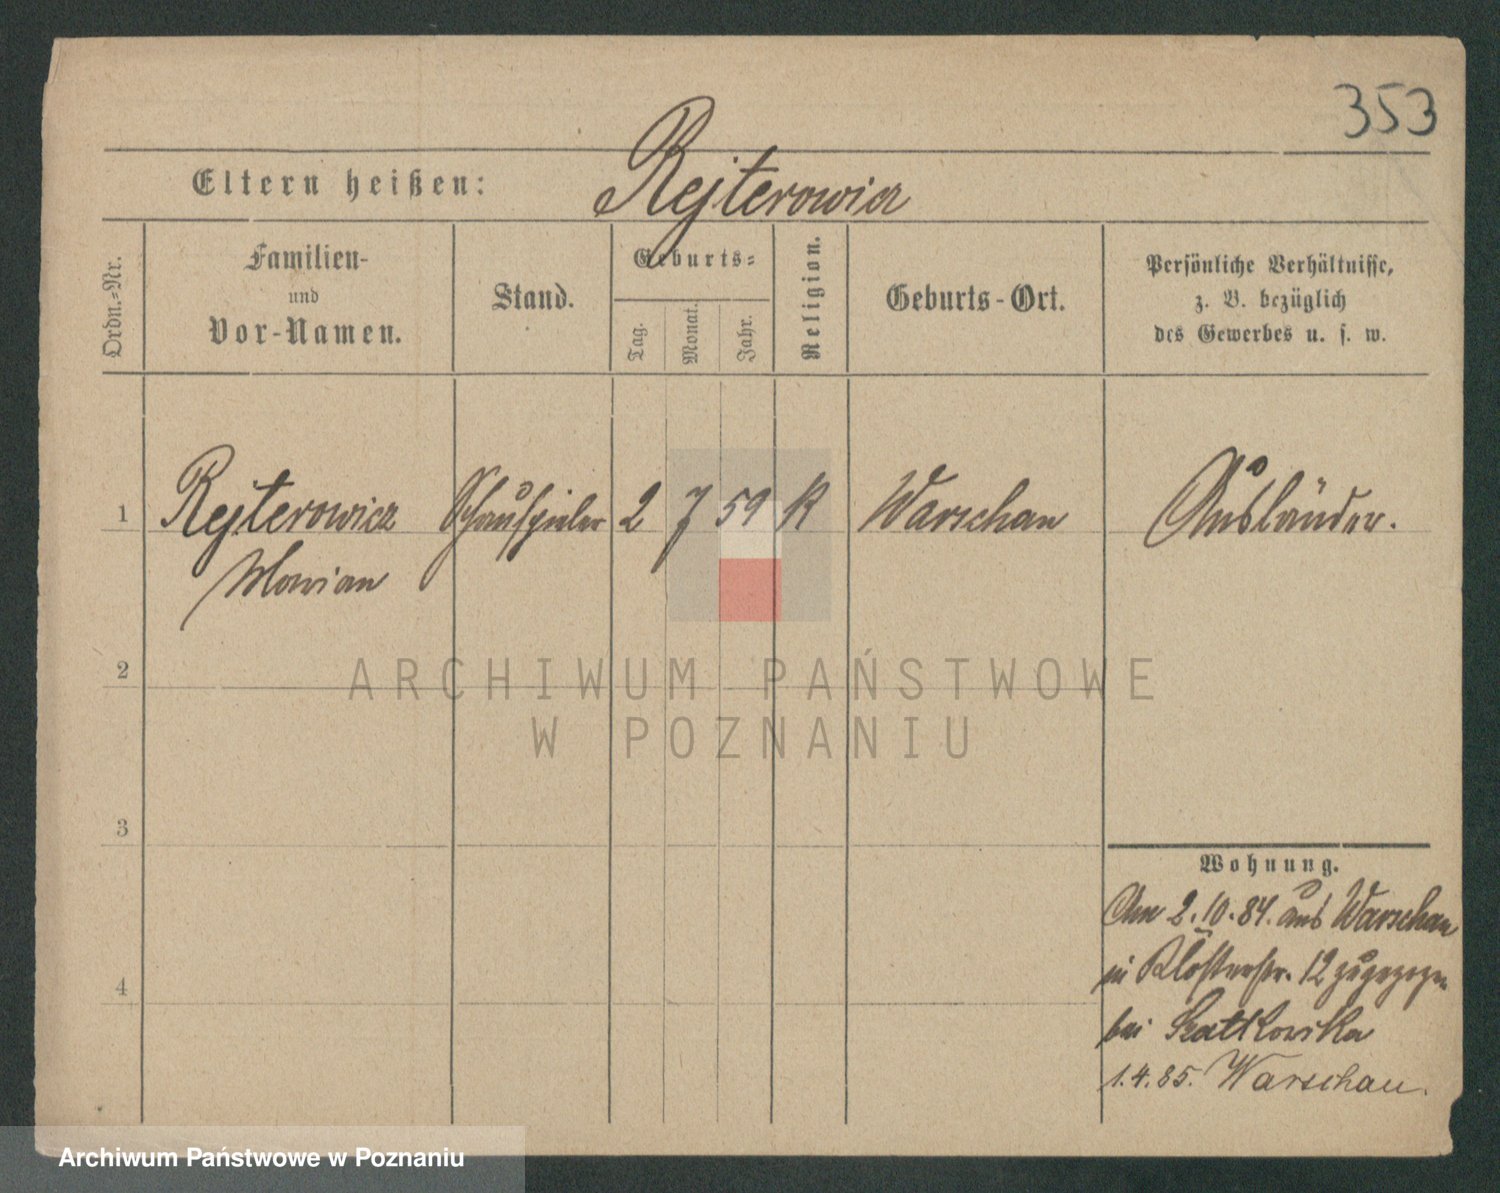 353
Eltern heißen: Rejterowicz
Ordn.=Nr.
Familien-
und
Vor-Namen.
Stand.
Geburts=
Tag.
Monat.
Jahr.
Religion.
Geburts-Ort.
Persönliche Verhältnisse,
z. B. bezüglich
des Gewerbes u. s. w.
1 Rejterowicz Schauspieler 2 7 59 K Warschau Ausländer.
2
ARCHIWUM PAŃSTWOWE
W POZNANIU
3
Wohnung.
Am 2.10.84. aus Warschau
in Klosterstr. 12 zugezogen
4
bei Szatkowska
1.4.85. Warschau.
Archiwum Państwowe w Poznaniu